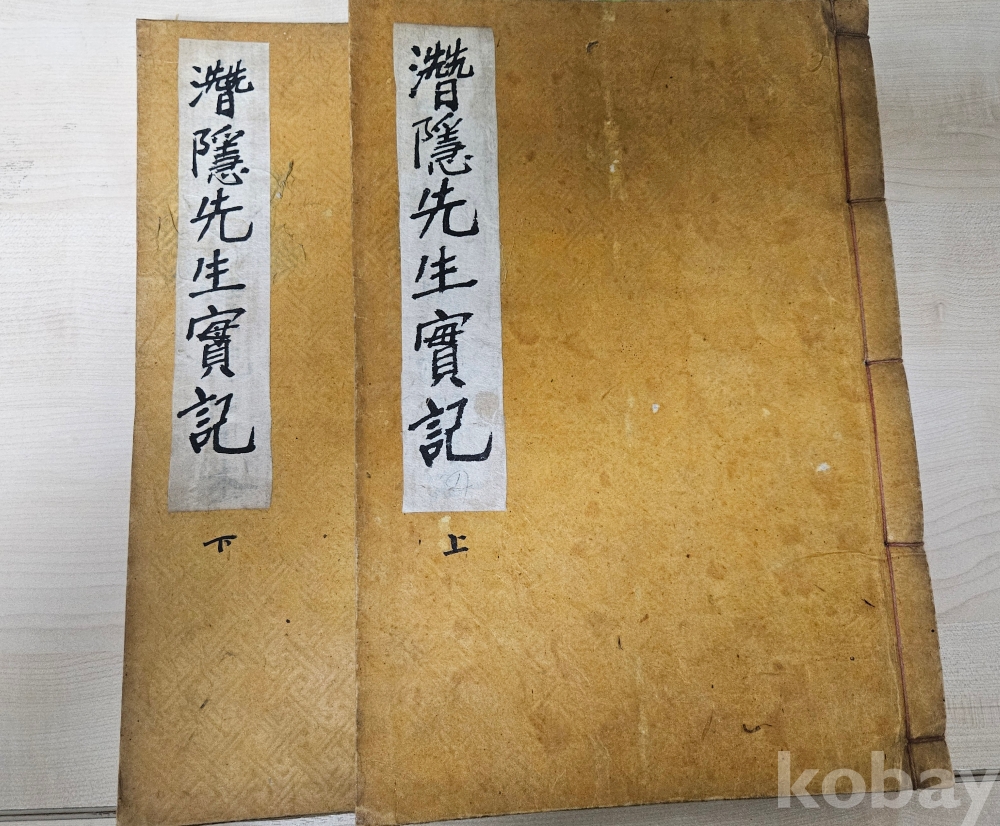 濳隱先生實記
上
濳隱先生實記
下
kobay